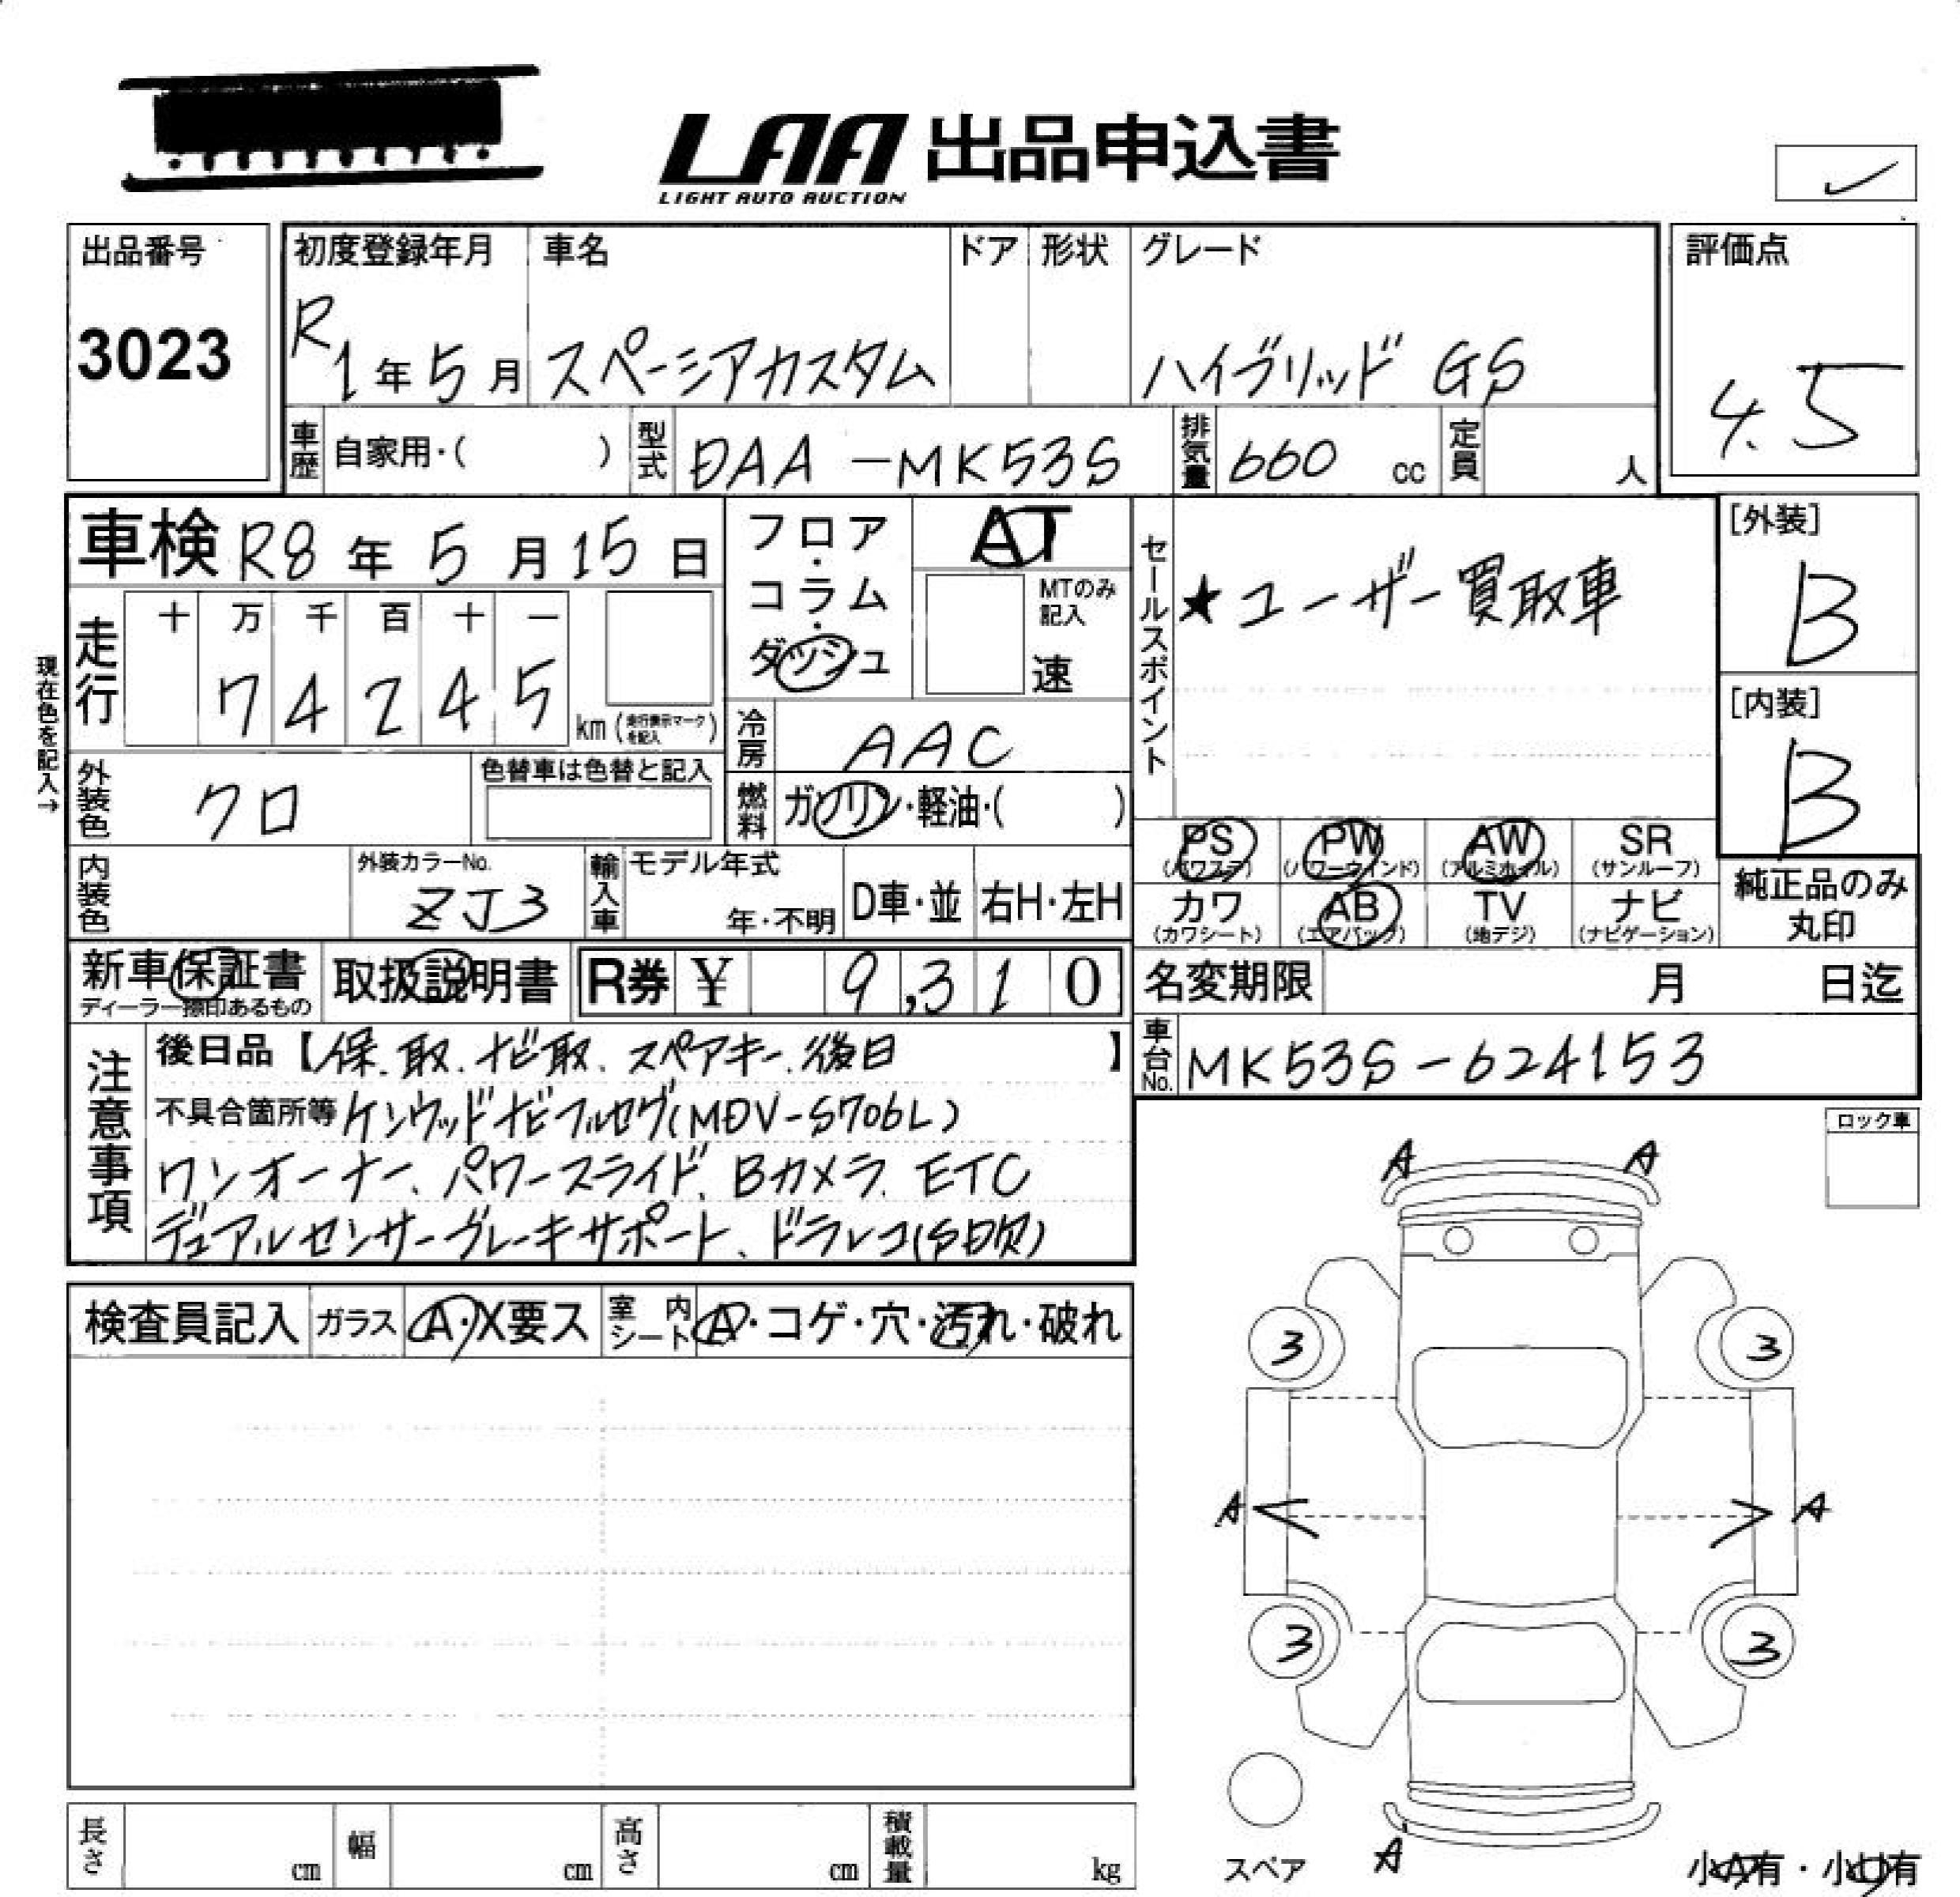 LAA 出品申込書
LIGHT AUTO AUCTION
出品番号
3023
初度登録年月
R1年5月
車名
スペーシアカスタム
ドア
形状
グレード
ハイブリッド GS
評価点
4.5
車歴 自家用・( )
型式 DAA-MK53S
排気量 660 cc
定員 人
車検 R8年5月15日
フロア・コラム・ダッシュ
AT
MTのみ記入
速
セールスポイント
★ユーザー買取車
[外装]
B
[内装]
B
現在色を記入→
走行
十 万 千 百 十 一
7 4 2 4 5
km (走行表示マークを記入)
冷房 AAC
外装色 クロ
色替車は色替と記入
燃料 ガソリン・軽油・( )
内装色
外装カラーNo.
ZJ3
輸入車
モデル年式
年・不明
D車・並
右H・左H
PS (パワステ)
PW (パワーウインド)
AW (アルミホイル)
SR (サンルーフ)
カワ (カワシート)
AB (エアバック)
TV (地デジ)
ナビ (ナビゲーション)
純正品のみ
丸印
新車保証書
ディーラー捺印あるもの
取扱説明書
R券 ¥ 9,310
名変期限 月 日迄
車台No. MK53S-624153
注意事項
後日品【保.取.ナビ取.スペアキー.後日】
不具合箇所等 ケンウッドナビフルセグ(MDV-S706L)
ワンオーナー、パワースライド、Bカメラ、ETC
デュアルセンサーブレーキサポート、ドラレコ(SD欠)
ロック車
検査員記入
ガラス A・X要ス
室内シート A・コゲ・穴・汚れ・破れ
A A
3 3
A A
3 3
A
スペア
小A有・小U有
長さ cm
幅 cm
高さ cm
積載量 kg